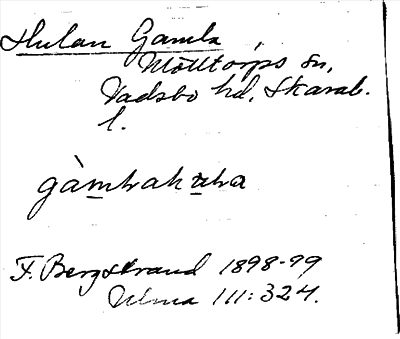 Hulan Gamla
Mölltorps sn,
Vadsbo hd, Skarab.
l.
F. Bergstrand 1898-99
Ulma 111:324.